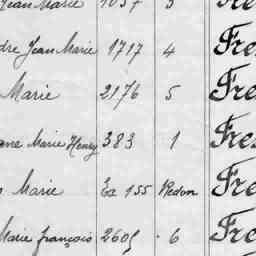 Jean Marie 1037 3 Fre
dre Jean Marie 1717 4 Fre
Marie 2176 5 Fre
Marie Henry 383 1 Fre
Marie Ex 155 Redon Fre
Marie françois 2605 6 Fre